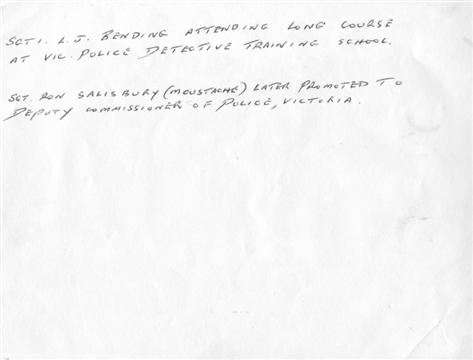 SGT1. L.J. BENDING ATTENDING LONG COURSE
AT VIC. POLICE DETECTIVE TRAINING SCHOOL.
SGT. RON SALISBURY (MOUSTACHE) LATER PROMOTED TO
DEPUTY COMMISSIONER OF POLICE, VICTORIA.